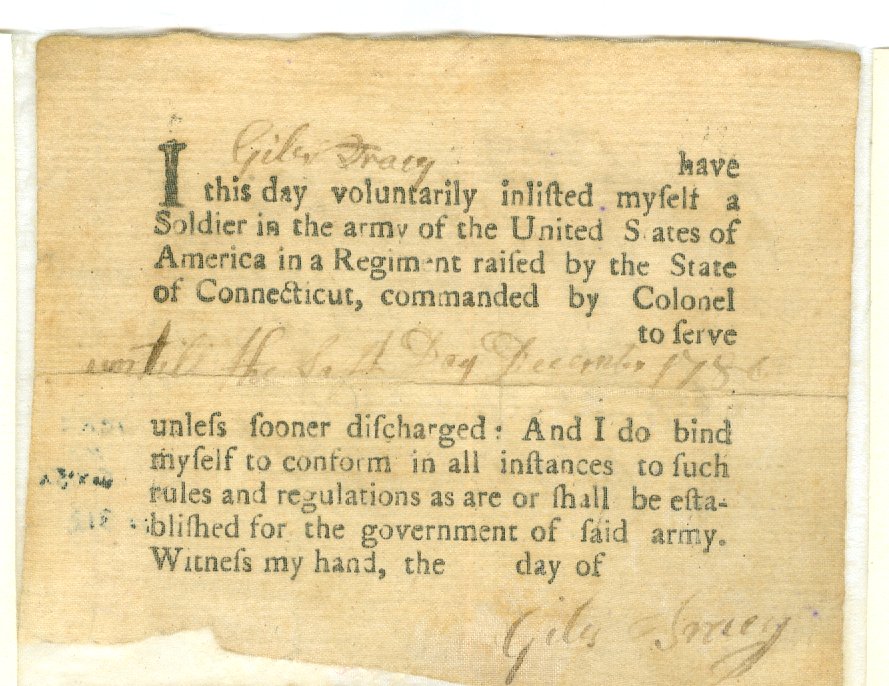 I Giles Tracy have
this day voluntarily inliſted myſelf a
Soldier in the army of the United States of
America in a Regiment raiſed by the State
of Connecticut, commanded by Colonel
to ſerve
untill the Last Day December 178
unleſs ſooner diſcharged: And I do bind
myſelf to conform in all inſtances to ſuch
rules and regulations as are or ſhall be eſta-
bliſhed for the government of ſaid army.
Witneſs my hand, the day of
Giles Tracy